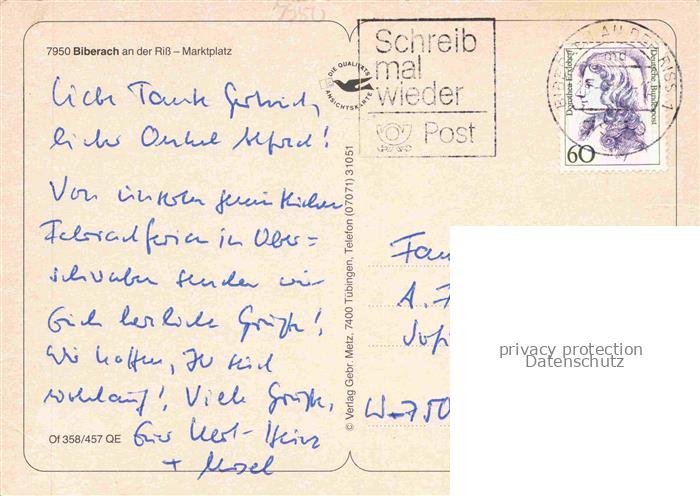 7950 Biberach an der Riß – Marktplatz
Liebe Tante Gertrud,
lieber Onkel Alfred!
Von unseren gemütlichen
Fahrradferien in Ober=
schwaben senden wir
Euch herzliche Grüße!
Wir hoffen, Ihr seid
wohlauf! Viele Grüße,
Euer Karl-Heinz
+
Of 358/457 QE
DIE QUALITÄTS
ANSICHTSKARTE
© Verlag Gebr. Metz, 7400 Tübingen, Telefon (07071) 31051
Schreib
mal
wieder
Post
BIBERACH AN DER RISS 1
Dorothea Erxleben
Deutsche Bundespost
60
Fam
A. F
W-750
privacy protection
Datenschutz